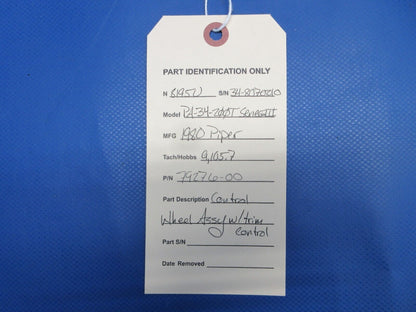 PART IDENTIFICATION ONLY
N 8195U S/N 34-8070010
Model PA-34-200T Seneca II
MFG 1980 Piper
Tach/Hobbs 9,105.7
P/N 79276-00
Part Description Control
Wheel Assy w/trim
control
Part S/N
Date Removed